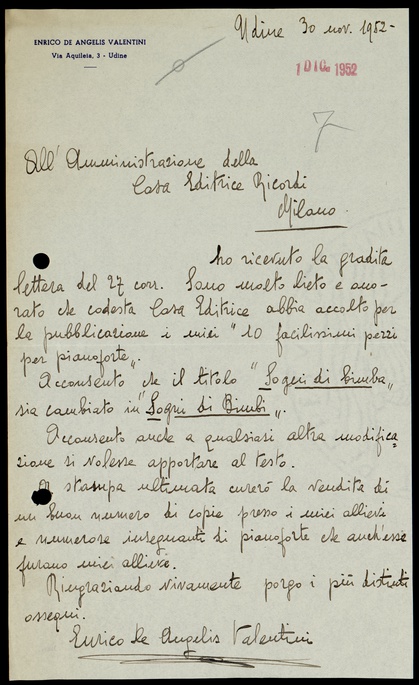 Udine 30 nov. 1952-
ENRICO DE ANGELIS VALENTINI
Via Aquileia, 3 - Udine
1 DIC. 1952
7
All'Amministrazione della
Casa Editrice Ricordi
Milano.
ho ricevuto la gradita
lettera del 27 corr. Sono molto lieto e ono-
rato che codesta Casa Editrice abbia accolto per
la pubblicazione i miei "10 facilissimi pezzi
per pianoforte".
Acconsento che il titolo "Sogni di bimba"
sia cambiato in "Sogni di Bimbi".
Acconsento anche a qualsiasi altra modifica
zione si volesse apportare al testo.
A stampa ultimata curerò la vendita di
un buon numero di copie presso i miei allievi
e numerose insegnanti di pianoforte che anch'esse
furano miei allieve.
Ringraziando vivamente porgo i più distinti
ossequi.
Enrico de Angelis Valentini